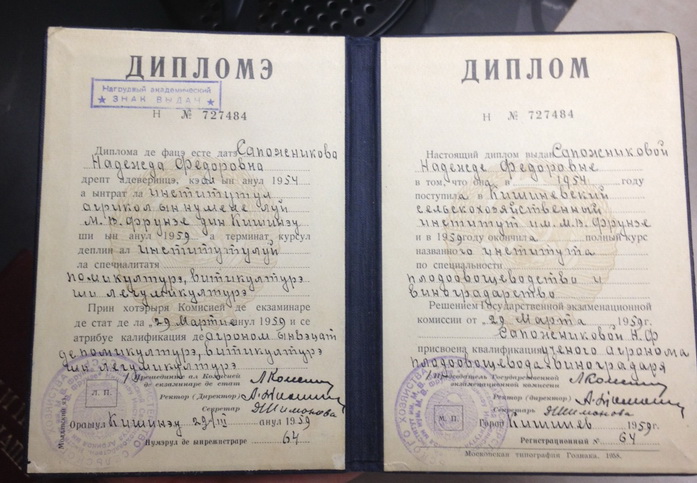 ДИПЛОМЭ
Нагрудный академический
★ ЗНАК ВЫДАН ★
Н № 727484
Диплома де фацэ есте датэ Сапожникова
Надежда Федоровна
дрепт адеверинцэ, кэ ал ын анул 1954
а ынтрат ла институтул
агрикол ын нумеле луй
М. В. Фрунзе дин Кишинэу
ши ын анул 1959 а терминат курсул
деплин ал институтулуй
ла специалитатя
помикултурэ, витикултурэ
ши легумикултурэ
Прин хотэрыря Комисией де екзаминаре
де стат де ла 29 Мартие анул 1959 и се
атрибуе калификация де агроном ынвэцат
де помикултурэ, витикултурэ
ши легумикултурэ
Прешединте ал Комисией
де екзаминаре де стат
Ректор (Директор)
Секретар
Л. П.
Орашул Кишинэу 29/III анул 1959
Нумэрул де ынрежистраре 64
ДИПЛОМ
Н № 727484
Настоящий диплом выдан Сапожниковой
Надежде Федоровне
в том, что она в 1954 году
поступила в Кишиневский
сельскохозяйственный
институт им. М. В. Фрунзе
и в 1959 году окончила полный курс
названного института
по специальности
плодоовощеводство и
виноградарство
Решением Государственной экзаменационной
комиссии от 29 Марта 1959г.
Сапожниковой Н.Ф
присвоена квалификация ученого агронома
плодоовощевода-виноградаря
Председатель Государственной
экзаменационной комиссии
Ректор (Директор)
Секретарь
М. П.
Город Кишинев 1959г.
Регистрационный № 64
Московская типография Гознака. 1958.